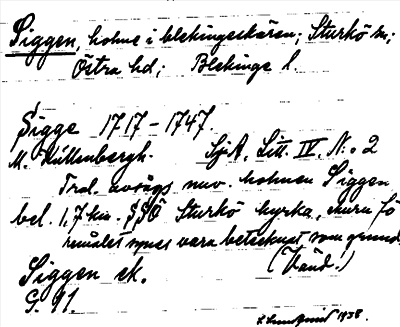 Siggen, holme i blekingeskären; Sturkö sn;
Östra hd; Blekinge l.
Sigge 1717–1747.
M. Küllenbergh. SjA. Litt. IV. N:o 2
Trol. avsågs nuv. holmen Siggen
bel. 1,7 km. SSÖ Sturkö kyrka, ehuru fö
remålet synes vara betecknat som grund.
(Vänd.)
Siggen sk.
G. 91.
1938.